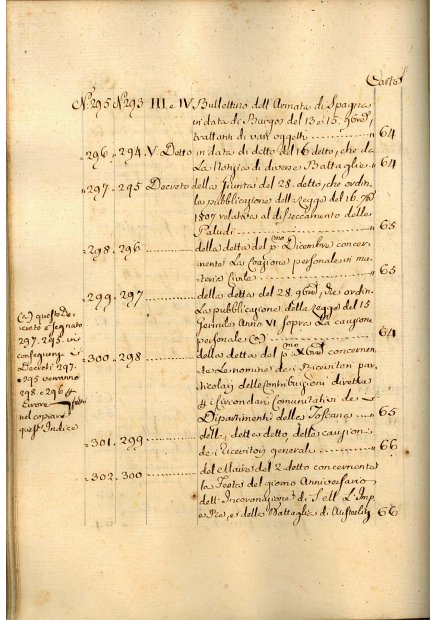 Carte
N.° 295 N.° 293 III e IV Bullettino dell'Armata di Spagna
in data di Burgos del 13 e 15. 9bre,
trattanti di varj oggetti 64
296 294 V. Detto in data di detto del 16 detto, che da
La Notizia di diverse Battaglie 64
297 295 Decreto della Giunta del 28. detto, che ordin.
la pubblicazione della Legge del 16. 7bre
1807 relativa al disseccamento delle
Paludi 65
298. 296 della detta del p.mo Dicembre concer-
nente La Coazione personale in ma-
teria Civile 65
299. 297 della detta del 28. 9bre, che ordin.
La pubblicazione della Legge del 15
Germile Anno VI sopra La
personale (a) 64
300. 298 della detta del p.mo Xbre concernen-
te Le nomine dei Ricevitori par-
ticolari delle Contribuzioni dirette
Circondarj Comunitativi de i 3
Dipartimenti della Toscana 65
301. 299 dell. dette detto delle cauzione
de Ricevitori generali 66
302. 300 del Maire del 2 detto concernente
la Festa del giorno Anniversario
dell'Incoronazione di S. M. L'Imp.
e Re, e della Battaglia di Austerlitz 66
(a) questo De-
creto è segnato
297. 295. in
conseguenza i
Decreti 297.
295 verranno
298. e 296 
Errore fatto
nel copiare
quest'Indice